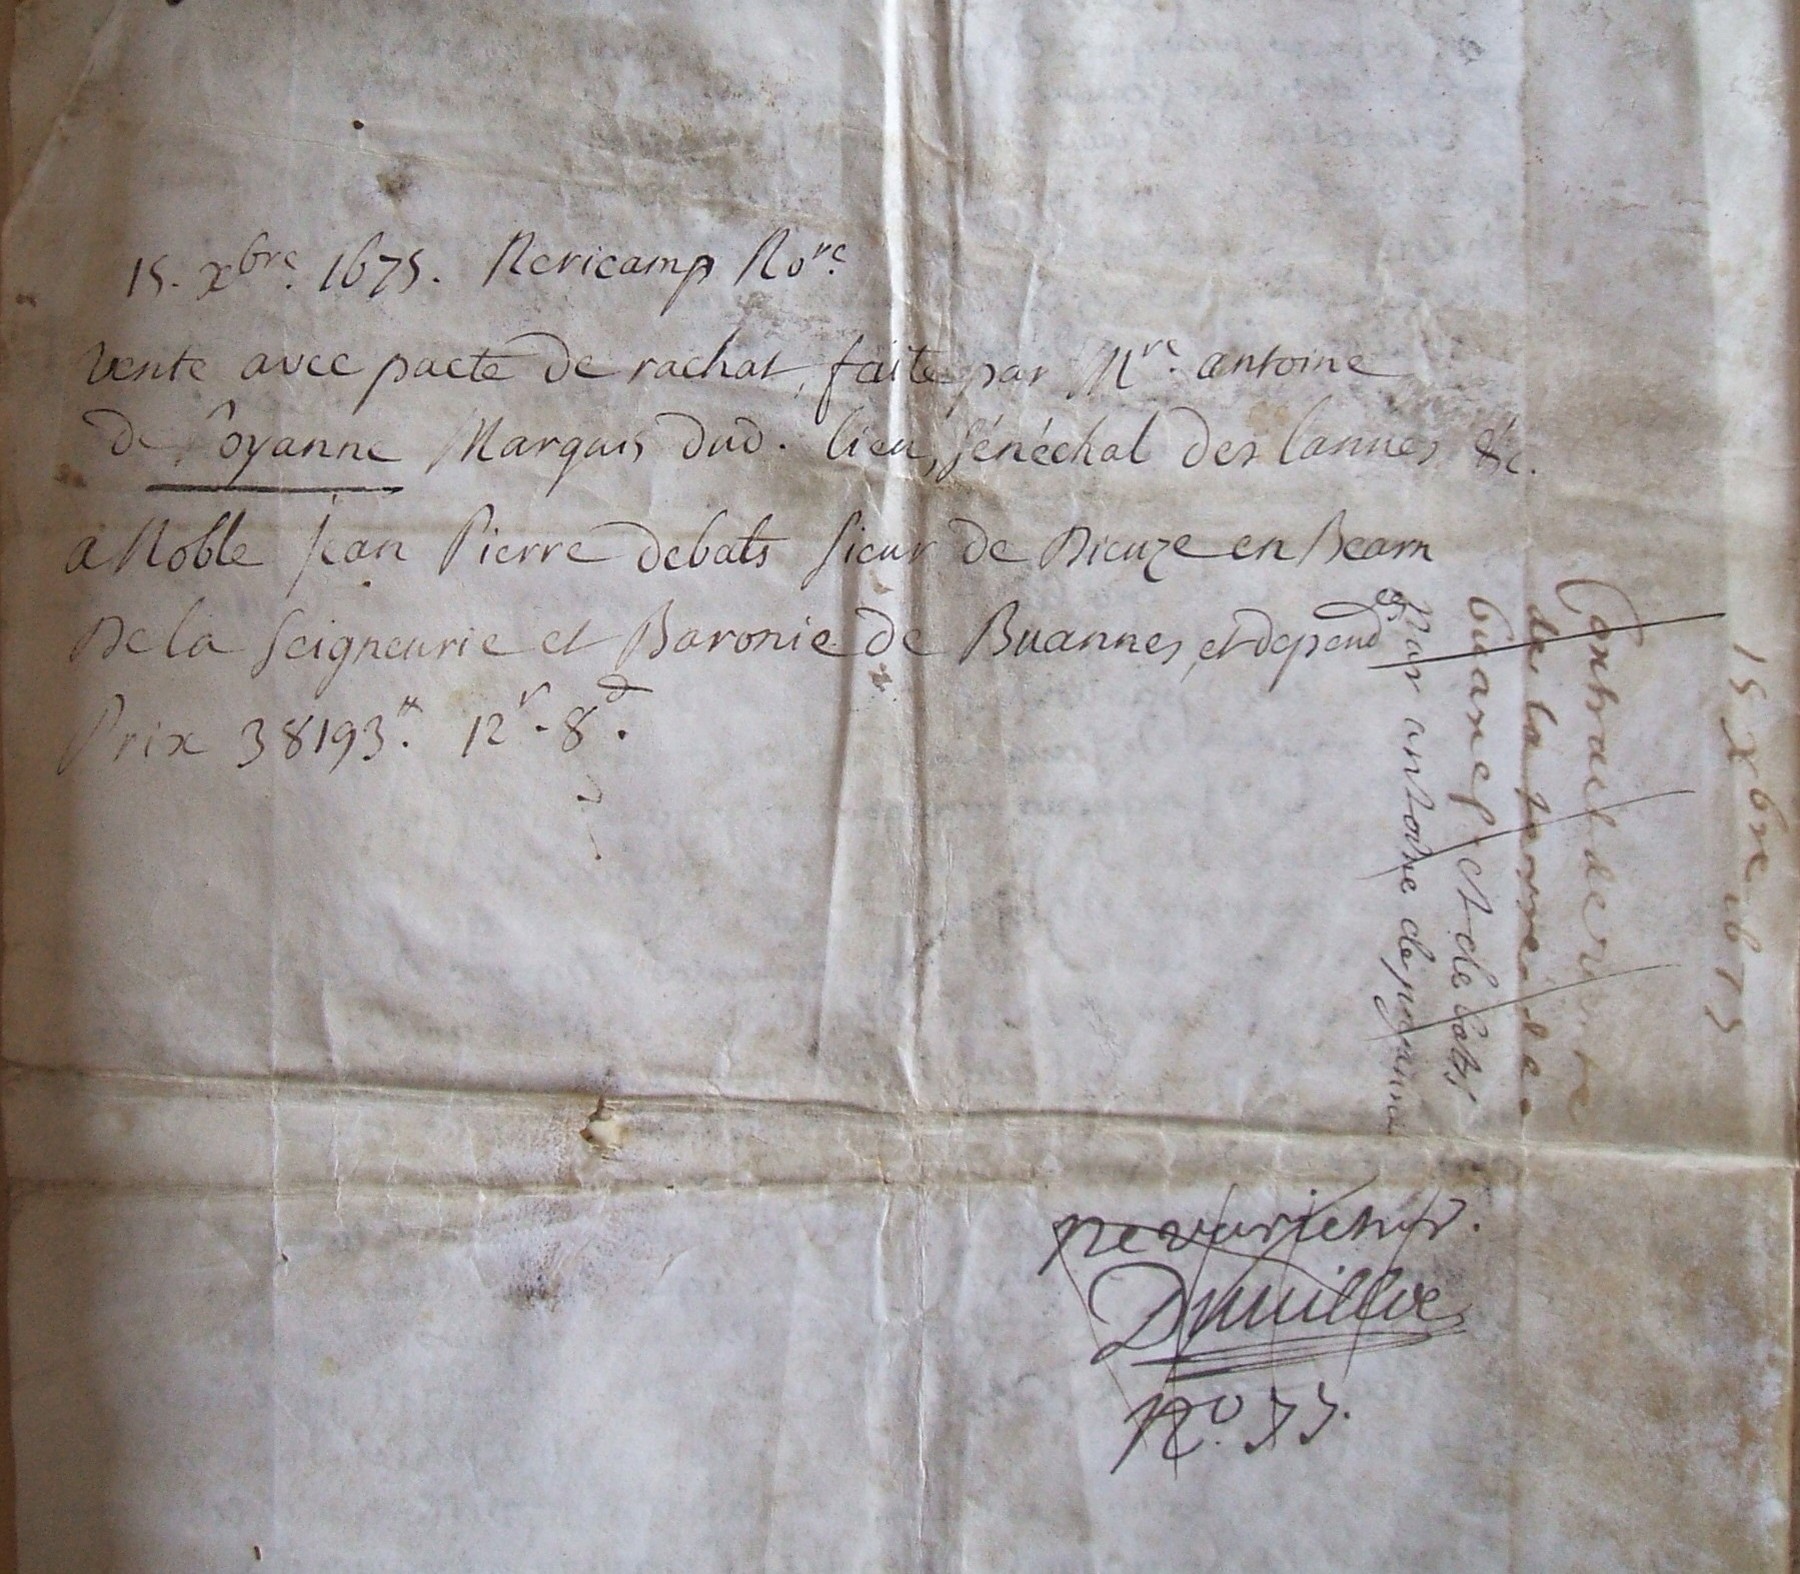 15. xbre. 1675. Nericamp No.re
vente avec pacte de rachat, faite par Mre. antoine
de Poyanne Marquis dud. lieu, sénéchal des lannes &c.
a Noble jean Pierre debats sieur de Dieuze en Bearn
De la seigneurie et Baronie de Buannes, et depend.
Prix 38193.tt 12s. 8d.
15 xbre 1675
Contract de vante
de la terre de
buanes et de bats
par antoine de poyanne
ne varietur.
No. 33.